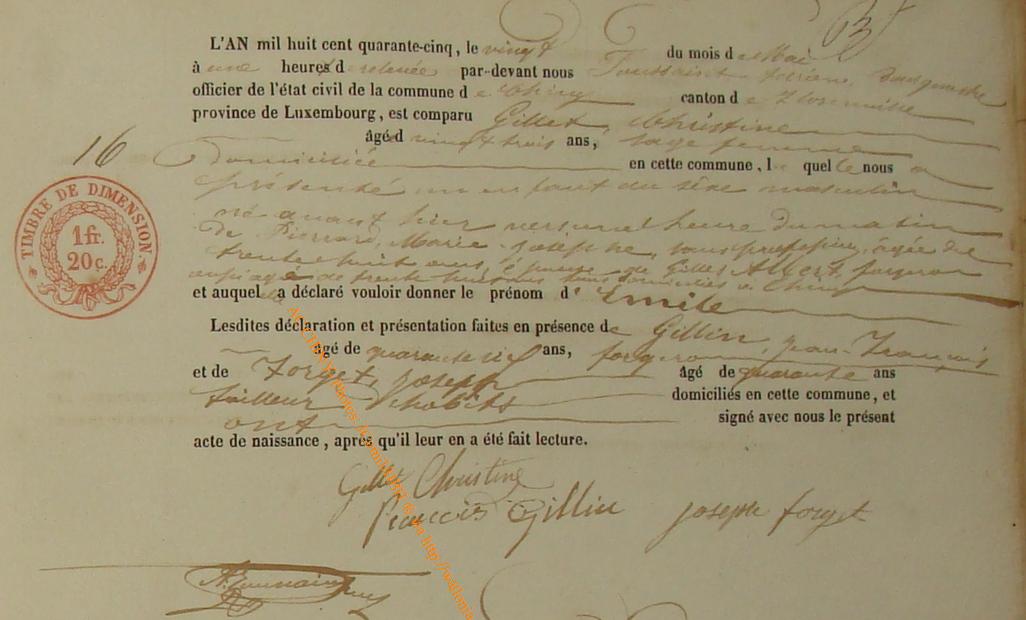 L'AN mil huit cent quarante-cinq, le vingt du mois de Mai
à une heure de relevée par-devant nous Toussaint Adrien, Bourgmestre
officier de l'état civil de la commune de Chiny canton de Florenville
province de Luxembourg, est comparu Gillet, Christine
âgée de vingt trois ans, sage femme
domiciliée en cette commune, laquelle nous a
présenté un enfant du sexe masculin
né avant hier vers une heure du matin
de Pierrard, Marie Josephe, sans profession, âgée de
trente huit ans, épouse de Gilles Albert, forgeron
aussi âgé de trente huit ans tous domiciliés à Chiny
et auquel a déclaré vouloir donner le prénom d' Emile
Lesdites déclaration et présentation faites en présence de Gillin, Jean-François
âgé de quarante six ans, forgeron
et de Forget, Joseph âgé de quarante ans
tailleur d'habits domiciliés en cette commune, et
ont signé avec nous le présent
acte de naissance, après qu'il leur en a été fait lecture.
Gillet Christine
François Gillin Joseph forget
16
TIMBRE DE DIMENSION.
1 fr.
20 c.